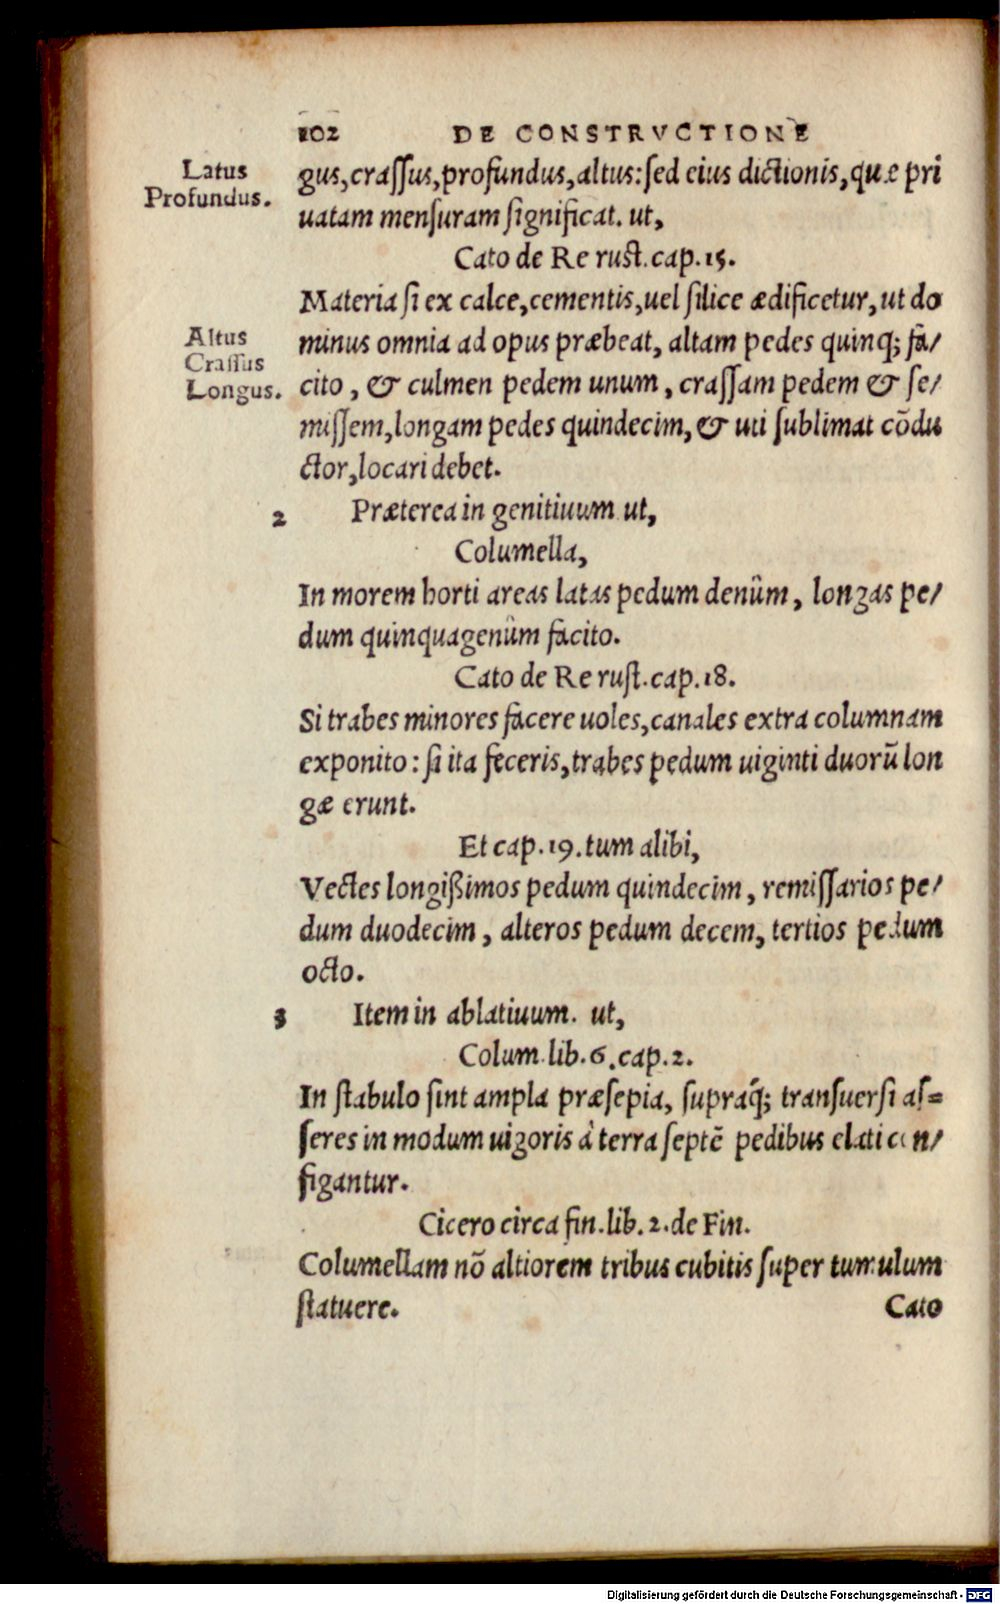 102 DE CONSTRVCTIONE
Latus
Profundus.
gus, craſſus, profundus, altus: ſed eius dictionis, quæ pri
uatam menſuram ſignificat. ut,
Cato de Re ruſt. cap. 15.
Materia ſi ex calce, cementis, uel ſilice ædificetur, ut do
Altus
Craſſus
Longus.
minus omnia ad opus præbeat, altam pedes quinq; fa/
cito, & culmen pedem unum, craſſam pedem & ſe/
miſſem, longam pedes quindecim, & uti ſublimat cõdu
ctor, locari debet.
2 Præterea in genitiuum ut,
Columella,
In morem horti areas latas pedum denûm, longas pe/
dum quinquagenûm facito.
Cato de Re ruſt. cap. 18.
Si trabes minores facere uoles, canales extra columnam
exponito: ſi ita feceris, trabes pedum uiginti duorũ lon
gæ erunt.
Et cap. 19. tum alibi,
Vectes longißimos pedum quindecim, remiſſarios pe/
dum duodecim, alteros pedum decem, tertios pedum
octo.
3 Item in ablatiuum. ut,
Colum. lib. 6. cap. 2.
In ſtabulo ſint ampla præſepia, ſupraq́; tranſuerſi aſ=
ſeres in modum uigoris à terra ſeptẽ pedibus elati con/
figantur.
Cicero circa fin. lib. 2. de Fin.
Columellam nõ altiorem tribus cubitis ſuper tumulum
ſtatuere. Cato
Digitalisierung gefördert durch die Deutsche Forschungsgemeinschaft - DFG